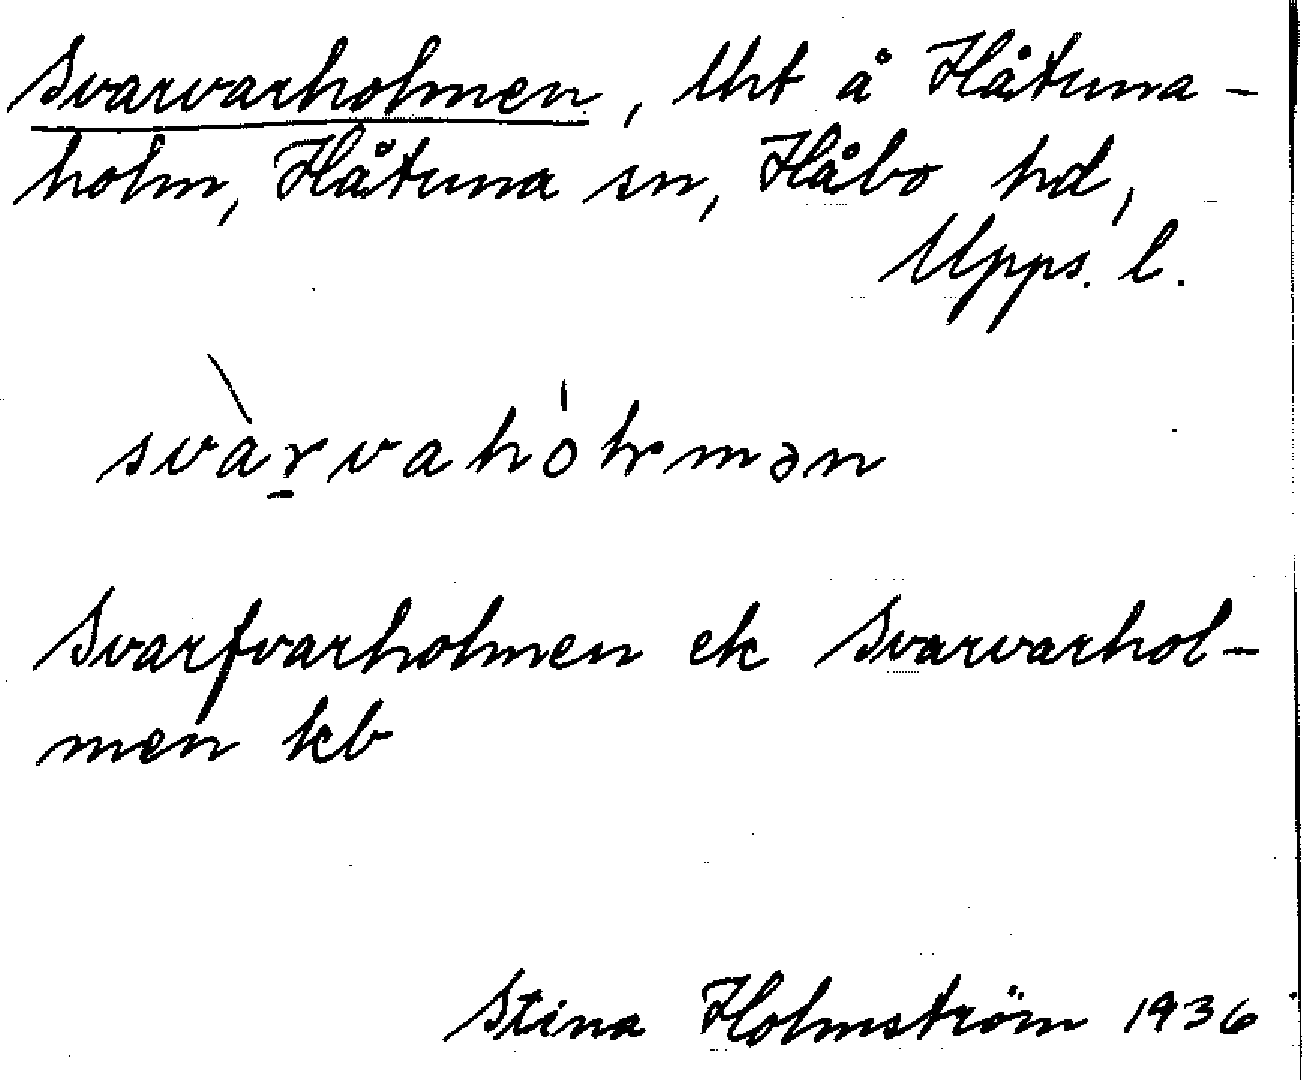 Svarvarholmen, lht å Håtuna-
holm, Håtuna sn, Håbo hd,
Upps. l.
svàrvahólmən
Svarfvarholmen ek Svarvarhol-
men kb
Stina Holmström 1936